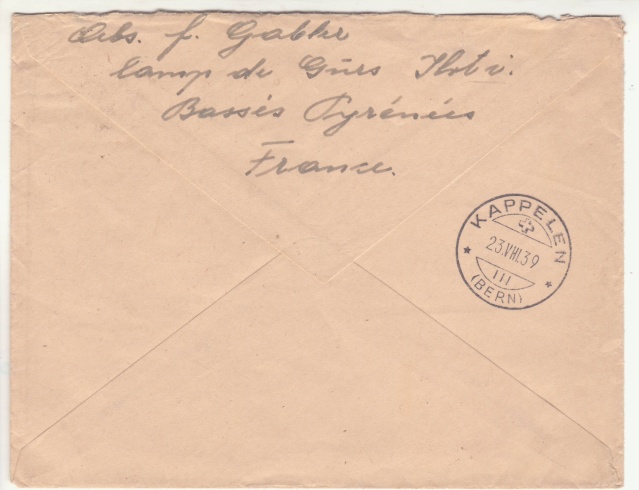 Abs. f. Gabke
Camp de Gurs Ilot i.
Bassés Pyrénées
France.
KAPPELEN
23.VIII.39
III
(BERN)